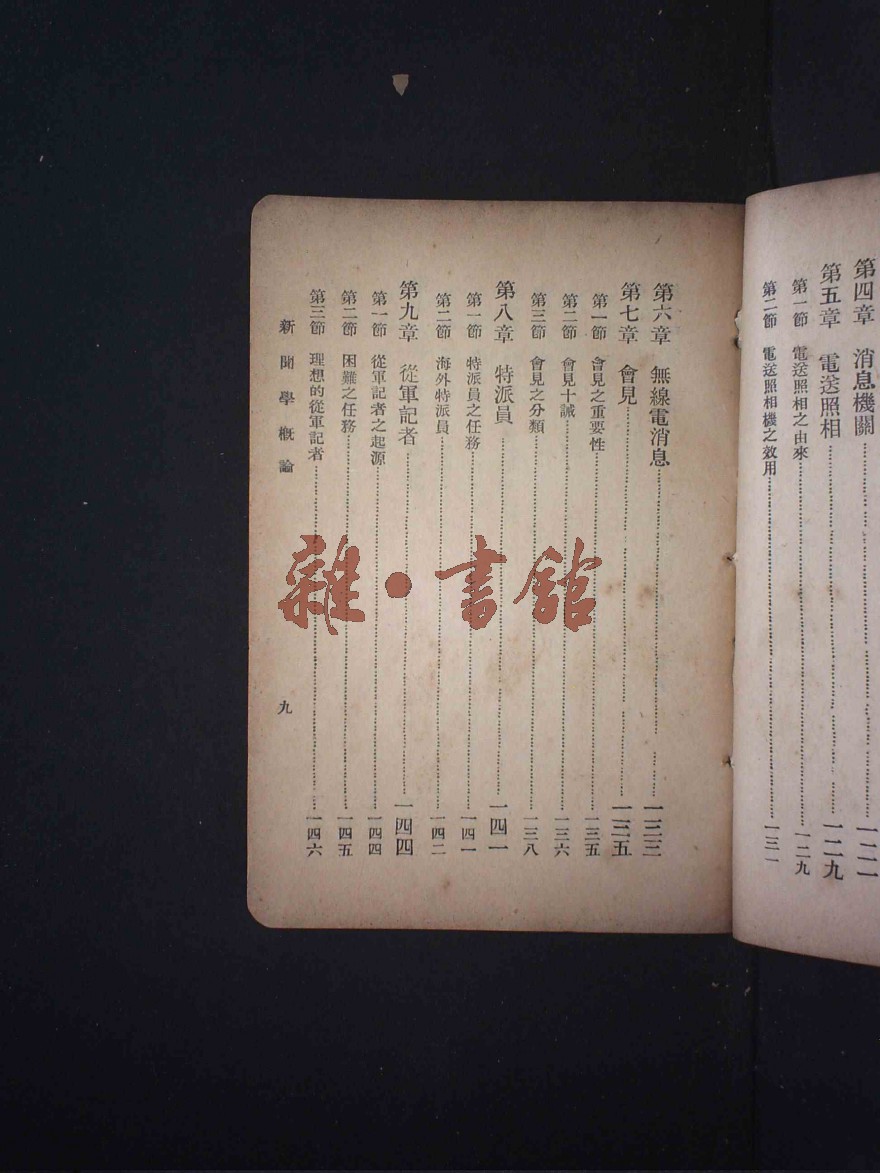 第四章　消息機關………一二一
第五章　電送照相………一二九
第一節　電送照相之由來………一二九
第二節　電送照相機之效用………一三一
第六章　無線電消息………一三三
第七章　會見………一三五
第一節　會見之重要性………一三五
第二節　會見十誡………一三六
第三節　會見之分類………一三八
第八章　特派員………一四一
第一節　特派員之任務………一四一
第二節　海外特派員………一四二
第九章　從軍記者………一四四
第一節　從軍記者之起源………一四四
第二節　困難之任務………一四五
第三節　理想的從軍記者………一四六
新聞學概論
九
雜·書館